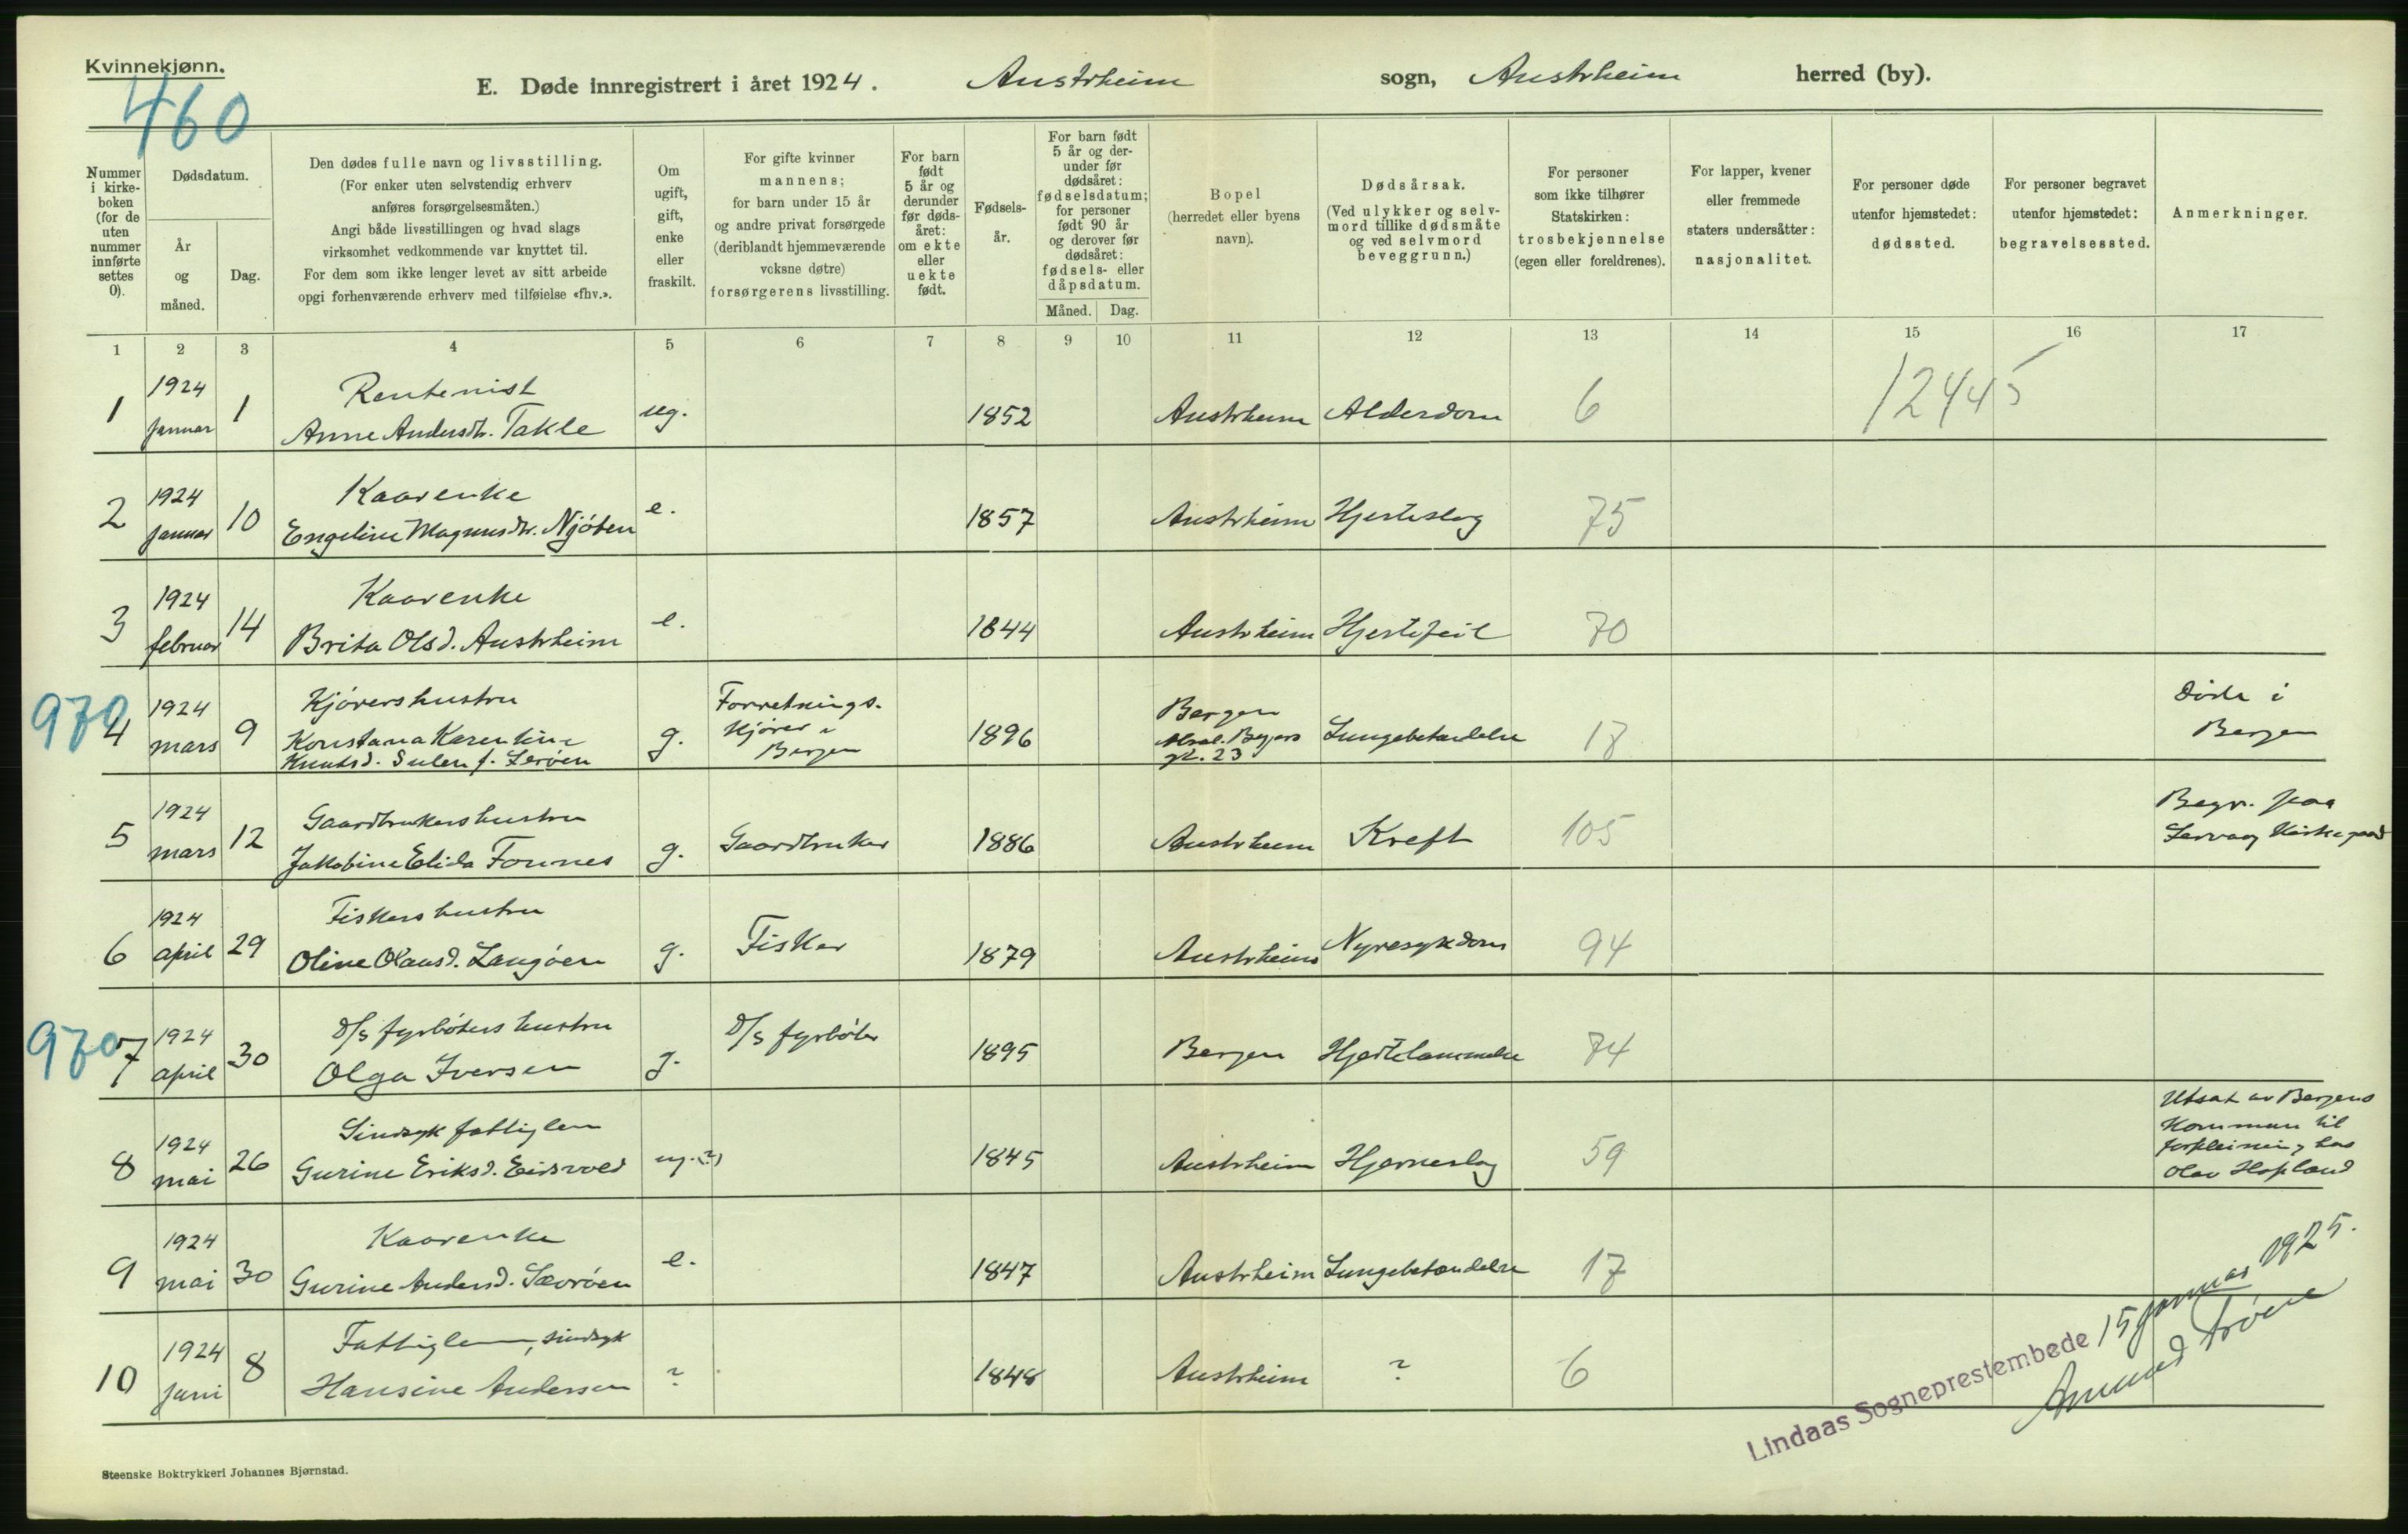 Kvinnekjønn.
460
E. Døde innregistrert i året 1924. Austrheim sogn, Austrheim herred (by).
Nummer i kirke-boken (for de uten nummer innførte settes 0).
Dødsdatum.
År og måned.
Dag.
Den dødes fulle navn og livsstilling.
(For enker uten selvstendig erhverv
anføres forsørgelsesmåten.)
Angi både livsstillingen og hvad slags
virksomhet vedkommende var knyttet til.
For dem som ikke lenger levet av sitt arbeide
opgi forhenværende erhverv med tilføielse «fhv.».
Om ugift, gift, enke eller fraskilt.
For gifte kvinner
mannens;
for barn under 15 år
og andre privat forsørgede
(deriblandt hjemmeværende
voksne døtre)
forsørgerens livsstilling.
For barn født 5 år og derunder før døds-året: om ekte eller uekte født.
Fødsels-år.
For barn født
5 år og der-
under før
dødsåret:
fødselsdatum;
for personer
født 90 år
og derover før
dødsåret:
fødsels- eller
dåpsdatum.
Måned. Dag.
Bopel
(herredet eller byens
navn).
Dødsårsak.
(Ved ulykker og selv-
mord tillike dødsmåte
og ved selvmord
beveggrunn.)
For personer
som ikke tilhører
Statskirken:
trosbekjennelse
(egen eller foreldrenes).
For lapper, kvener
eller fremmede
staters undersåtter:
nasjonalitet.
For personer døde
utenfor hjemstedet:
dødssted.
For personer begravet
utenfor hjemstedet:
begravelsessted.
Anmerkninger.
1 2 3 4 5 6 7 8 9 10 11 12 13 14 15 16 17
1924 Rentenist
1 januar 1 Anne Andersdtr. Takle ug. 1852 Austrheim Alderdom 6 12445
1924 Kaarenke
2 januar 10 Engeline Magnusdtr. Njöten e. 1857 Austrheim Hjerteslag 75
1924 Kaarenke
3 februar 14 Brita Olsd. Austrheim e. 1844 Austrheim Hjertefeil 70
970
1924 Kjörershustru Forretnings- Bergen Döde i
4 mars 9 Konstana Karentine g. kjörer i 1896 Lungebetændelse 18 Bergen
Knutsd. Sulen f. Leröen Bergen gt. 23
1924 Gaardbrukershustru Begr. paa
5 mars 12 Jakobine Elida Fonnes g. Gaardbruker 1886 Austrheim Kreft 105
1924 Fiskershustru
6 april 29 Oline Olausd. Langöen g. Fisker 1879 Austrheim Nyresykdom 94
970
1924 D/s fyrböters hustru D/s fyrböter
7 april 30 Olga Iversen g. 1895 Bergen Hjertelammelse 74
1924 Sindsyk fattiglem Utsat av Bergens
Kommune til
8 mai 26 Gurine Eriksd. Eidsvold ug.(?) 1845 Austrheim Hjerneslag 59 forpleining hos
Olav Hopland
1924 Kaarenke
9 mai 30 Gurine Andersd. Sævröen e. 1847 Austrheim Lungebetændelse 17
1924 Fattiglem, sindsyk
10 juni 8 Hansine Andersen ? 1848 Austrheim ? 6
Lindaas Sogneprestembede 15 januar 1925.
Steenske Boktrykkeri Johannes Bjørnstad.